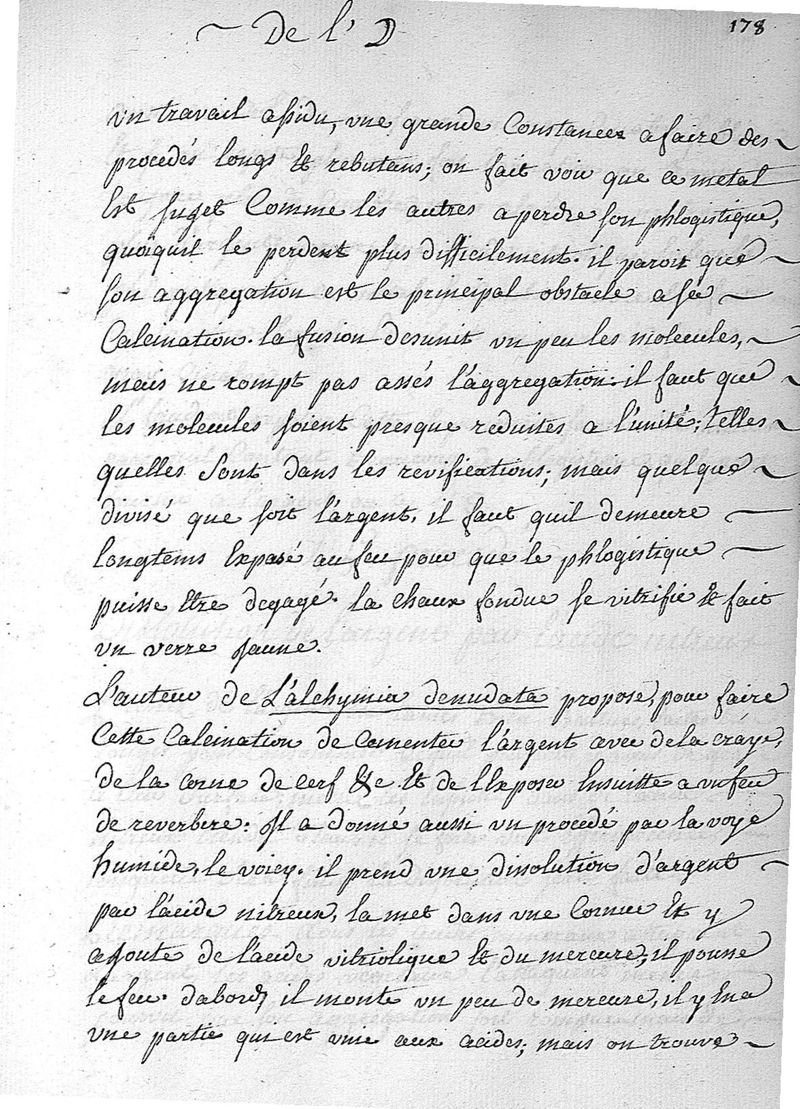 ~ De l' ☽ 178
un travail assidu, une grande Constances a faire des ~
procedés longs et rebutans; on fait voir que ce metal
Est sujet Comme les autres a perdre son phlogistique,
quoiquil le perdent plus difficilement. il paroit que ~
son aggregation est le principal obstacle a sa ~
Calcination. la fusion desunit un peu les molecules, ~
mais ne rompt pas assés l'aggregation: il faut que ~
les molecules soient presque reduites a l'unité; telles ~
quelles Sont dans les revifications; mais quelque ~
divisé que soit l'argent, il faut quil demeure ~
longtems Exposé au feu pour que le phlogistique ~
puisse Etre degagé. la chaux fondue se vitrifie et fait
un verre jaune.
L'auteur de L'alchymia denudata propose, pour faire
Cette Calcination de Cementer l'argent avec de la craye,
de la corne de cerf &c Et de l'Exposer Ensuitte a un feu
de reverbere: Il a donné aussi un procedé par la voye
humide, le voicy. il prend une dissolution d'argent ~
par l'acide nitreux, la met dans une Cornue Et y
ajoute de l'acide vitriolique Et du mercure; il pousse
le feu. dabord, il monte un peu de mercure, il y En a
une partie qui est unie aux acides; mais on trouve ~